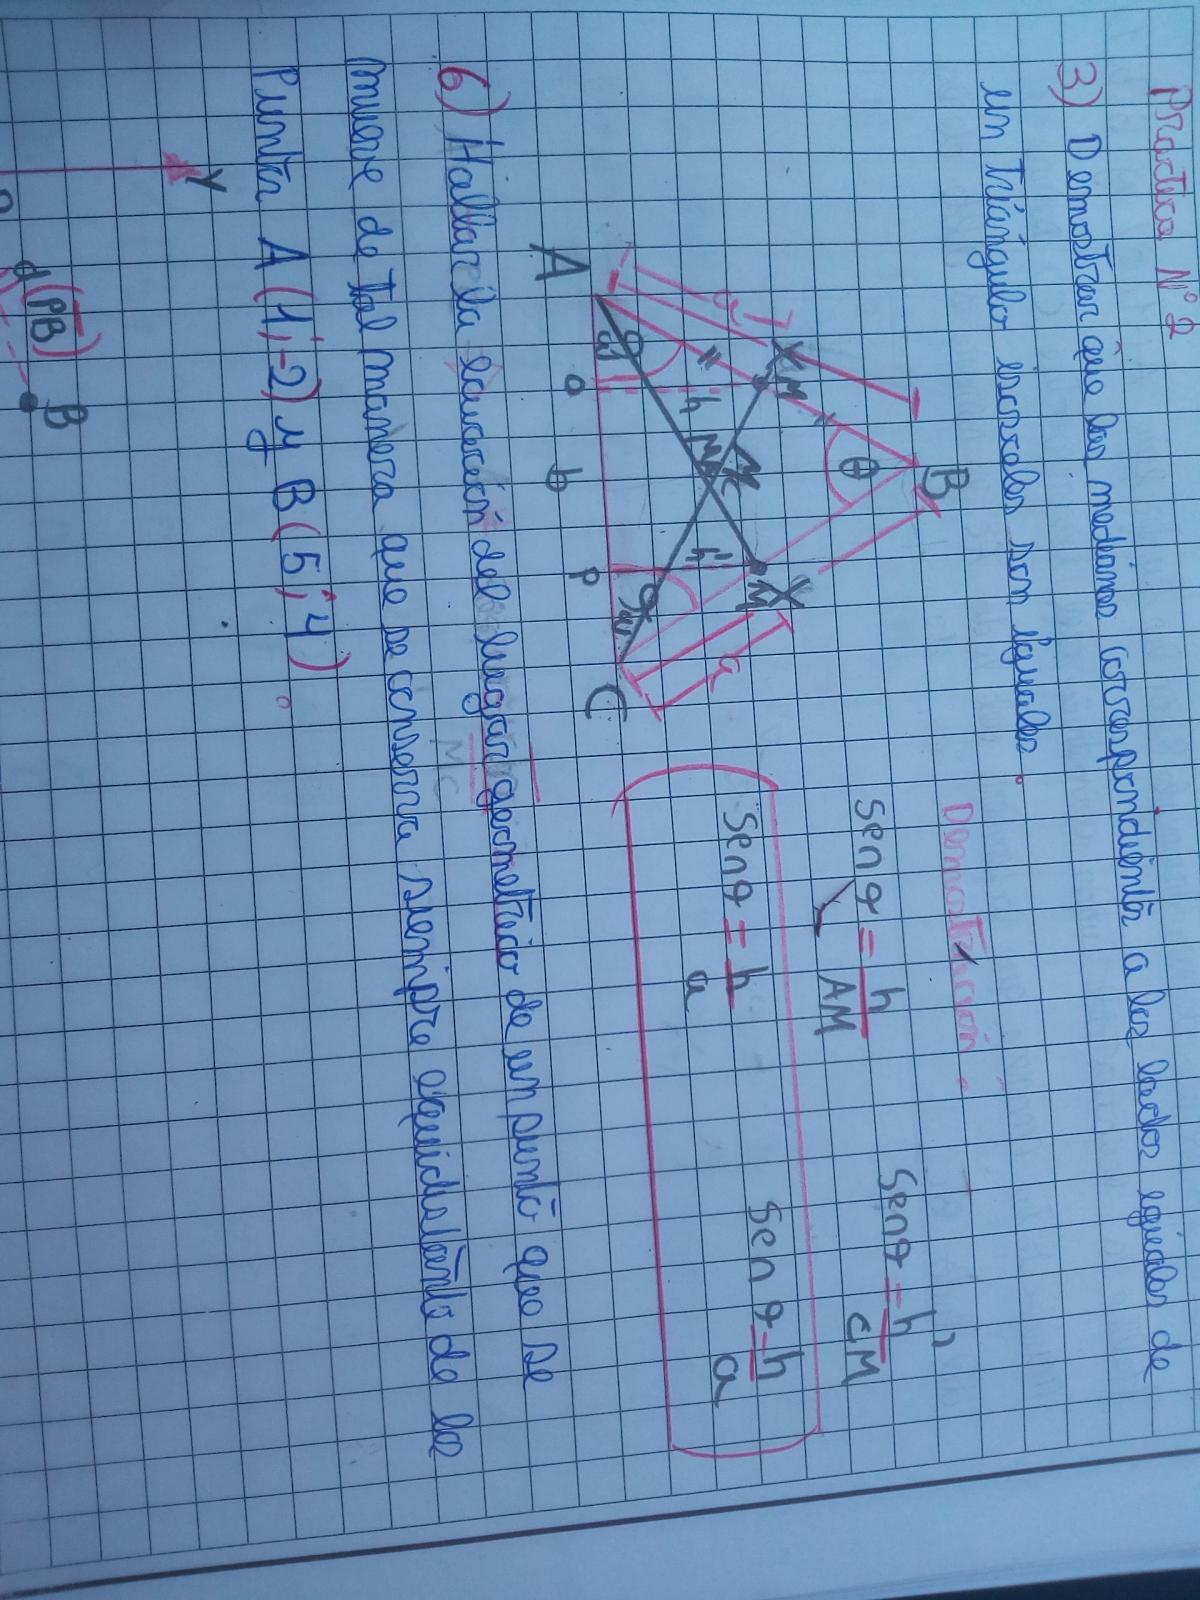 Práctica N°2
3) Demostrar que las medianas correspondientes a los lados iguales de
un triángulo isósceles son iguales.
Demostración.
B
θ
X
M
X
M
h
h'
a
a
A
α
α
C
o
b
P
Sen α = h / AM
Sen α = h' / CM
Sen α = h / a
Sen α = h / a
6) Hallar la ecuación del lugar geométrico de un punto que se
mueve de tal manera que se conserva siempre equidistante de los
puntos A (1;-2) y B (5;4).
MC
y
d(PB)
B